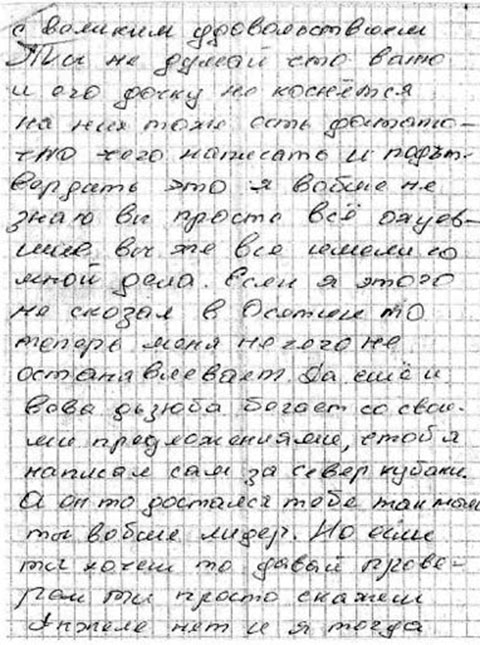 с великим удовольствием
Ты не думай что вато
и его дочку не коснётся
на них тоже есть достато-
чно чего написать и подът-
вердать это я вобше не
знаю вы просто всё охуев-
шие вы же все имели со
мной дела. Если я этого
не сказал в Осетии то
теперь меня не чего не
останавлевает. Да ешё и
Вова дьзюба бегает со свои-
ми предложениями, чтоб я
написал сам за север кубани.
А он то достался тебе так
ты вобше лидер. Но если
ты хочеш то давай прове-
рем ты просто скажеш
Анжеле нет и я тогда